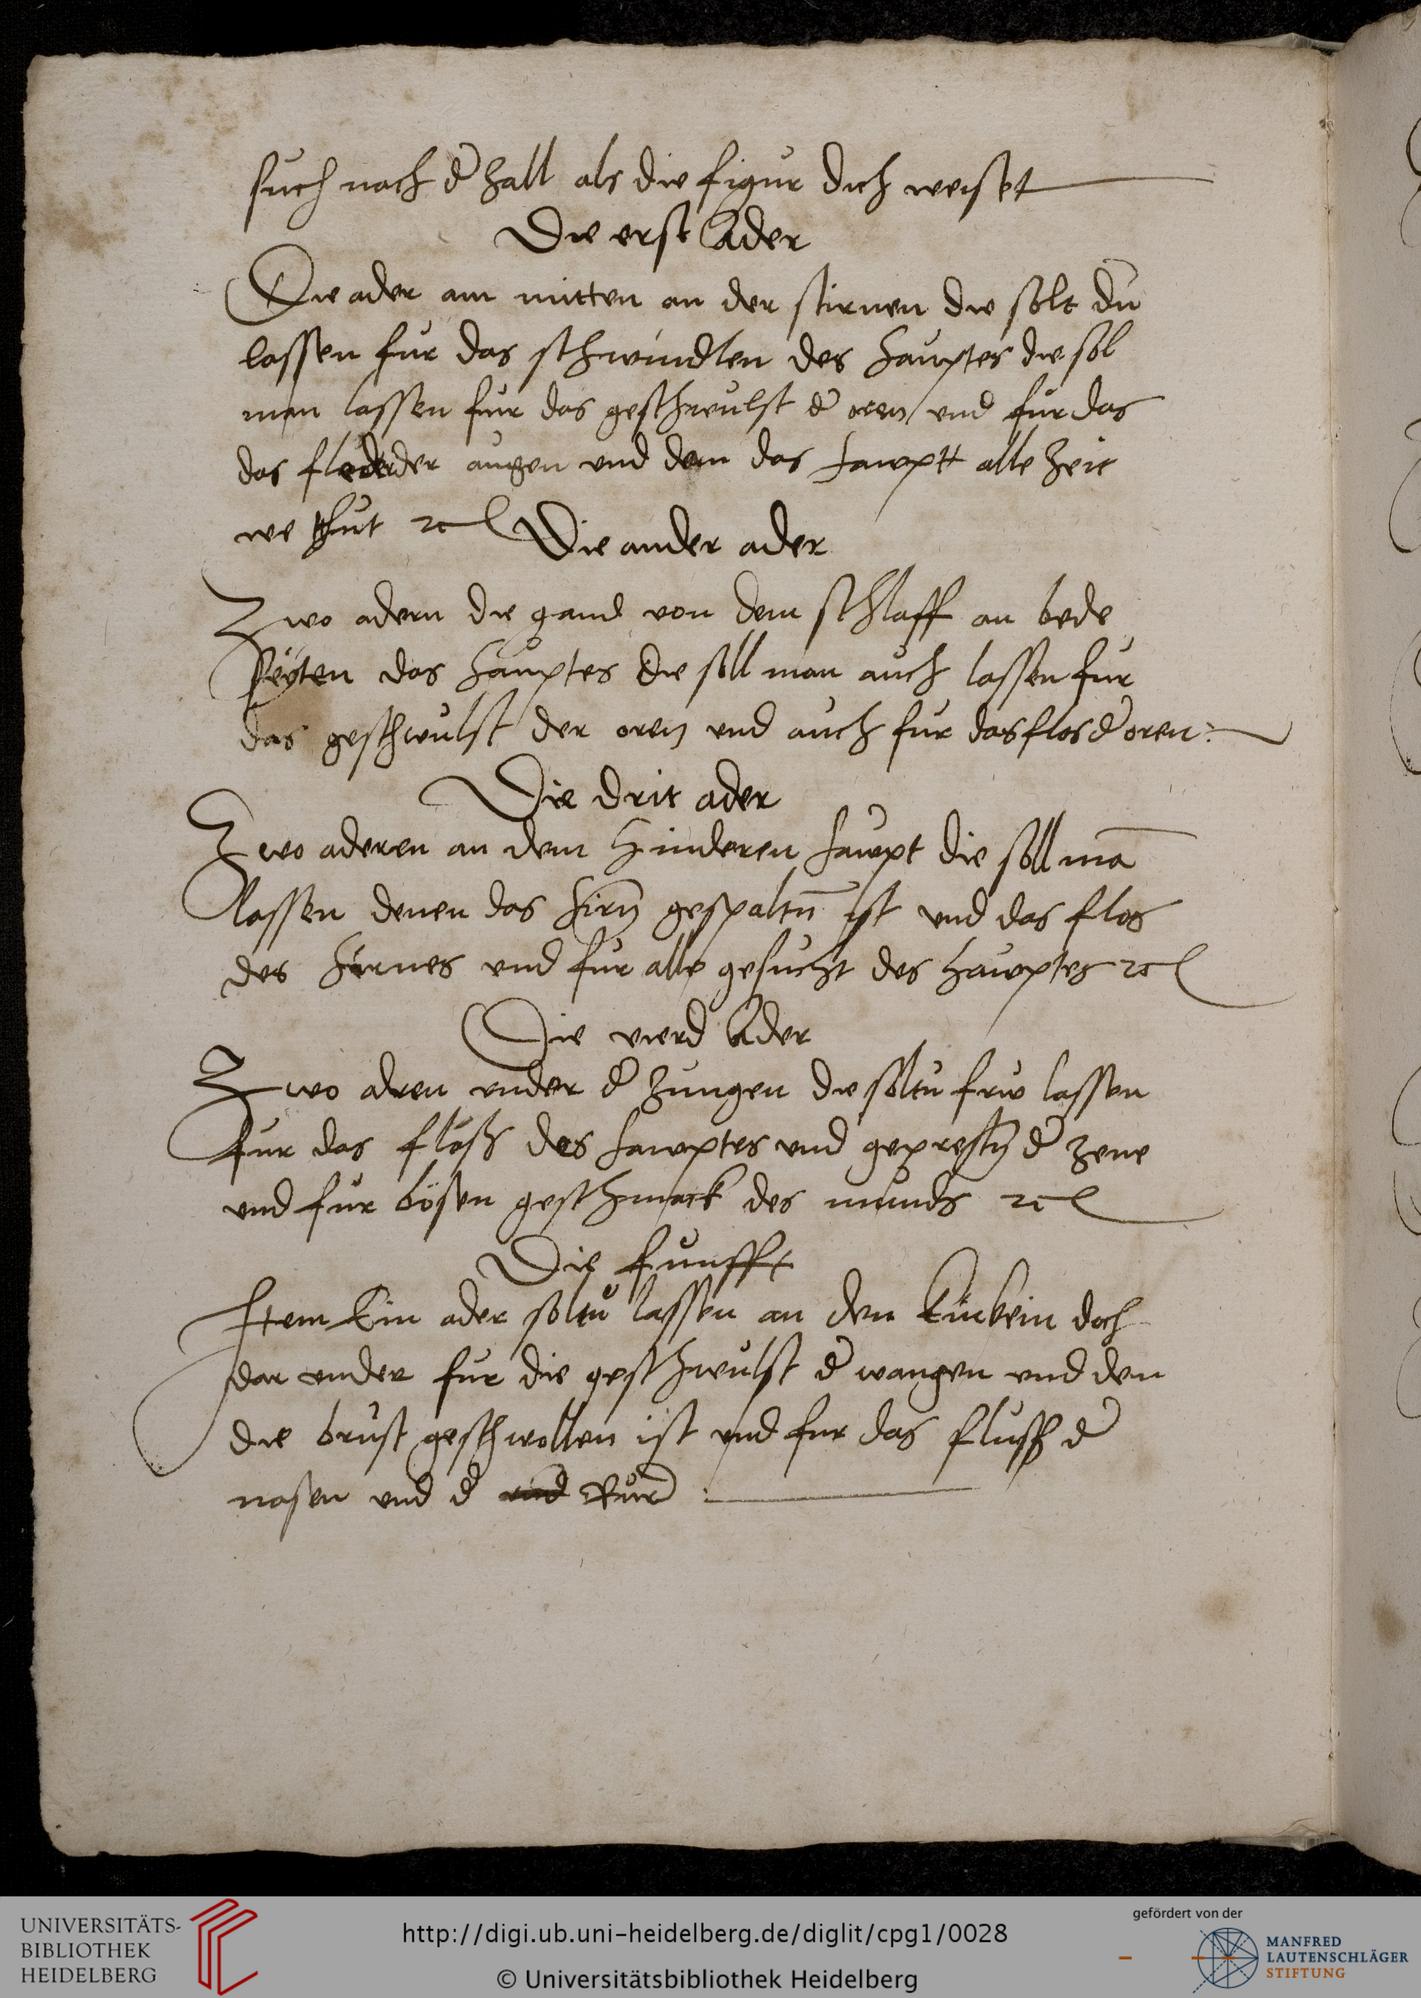 such nach d' zall als die figur dich weiset
Die erst Ader
Die ader am mitten an der stirnen die solt du
lassen fur das schwindlen des hauptes die sol
man lassen fur das geschwulst d' oren und fur das
das der augen und dem das hawptt alle zeit
we thut
Die ander ader
Zwo adern die gand von dem schlaff an bede
seyten das hauptes die soll man auch lassen fur
das geschwulst der oren und auch fur das flos d' oren :
Die drit ader
Zwo aderen an dem hinderen hawpt die soll mā
lassen denen das hirn gespaltn̄ ist und das flos
des hirnes und fur alle gesucht des hawptes
Die vierd Ader
Zwo adren under d' zungen die soltu frw lassen
fur das fluss des hawptes und d' zene
und fur bösen geschmack des munds
Die funfft
Item Ein ader soltu lassen an den kinbein doch
dar under fur die geschwulst d' wangen und den
die brust geschwollen ist und fur das fluss d'
nasen und d'
UNIVERSITÄTS-
BIBLIOTHEK
HEIDELBERG
http://digi.ub.uni-heidelberg.de/diglit/cpg1/0028
© Universitätsbibliothek Heidelberg
gefördert von der
MANFRED
LAUTENSCHLÄGER
STIFTUNG